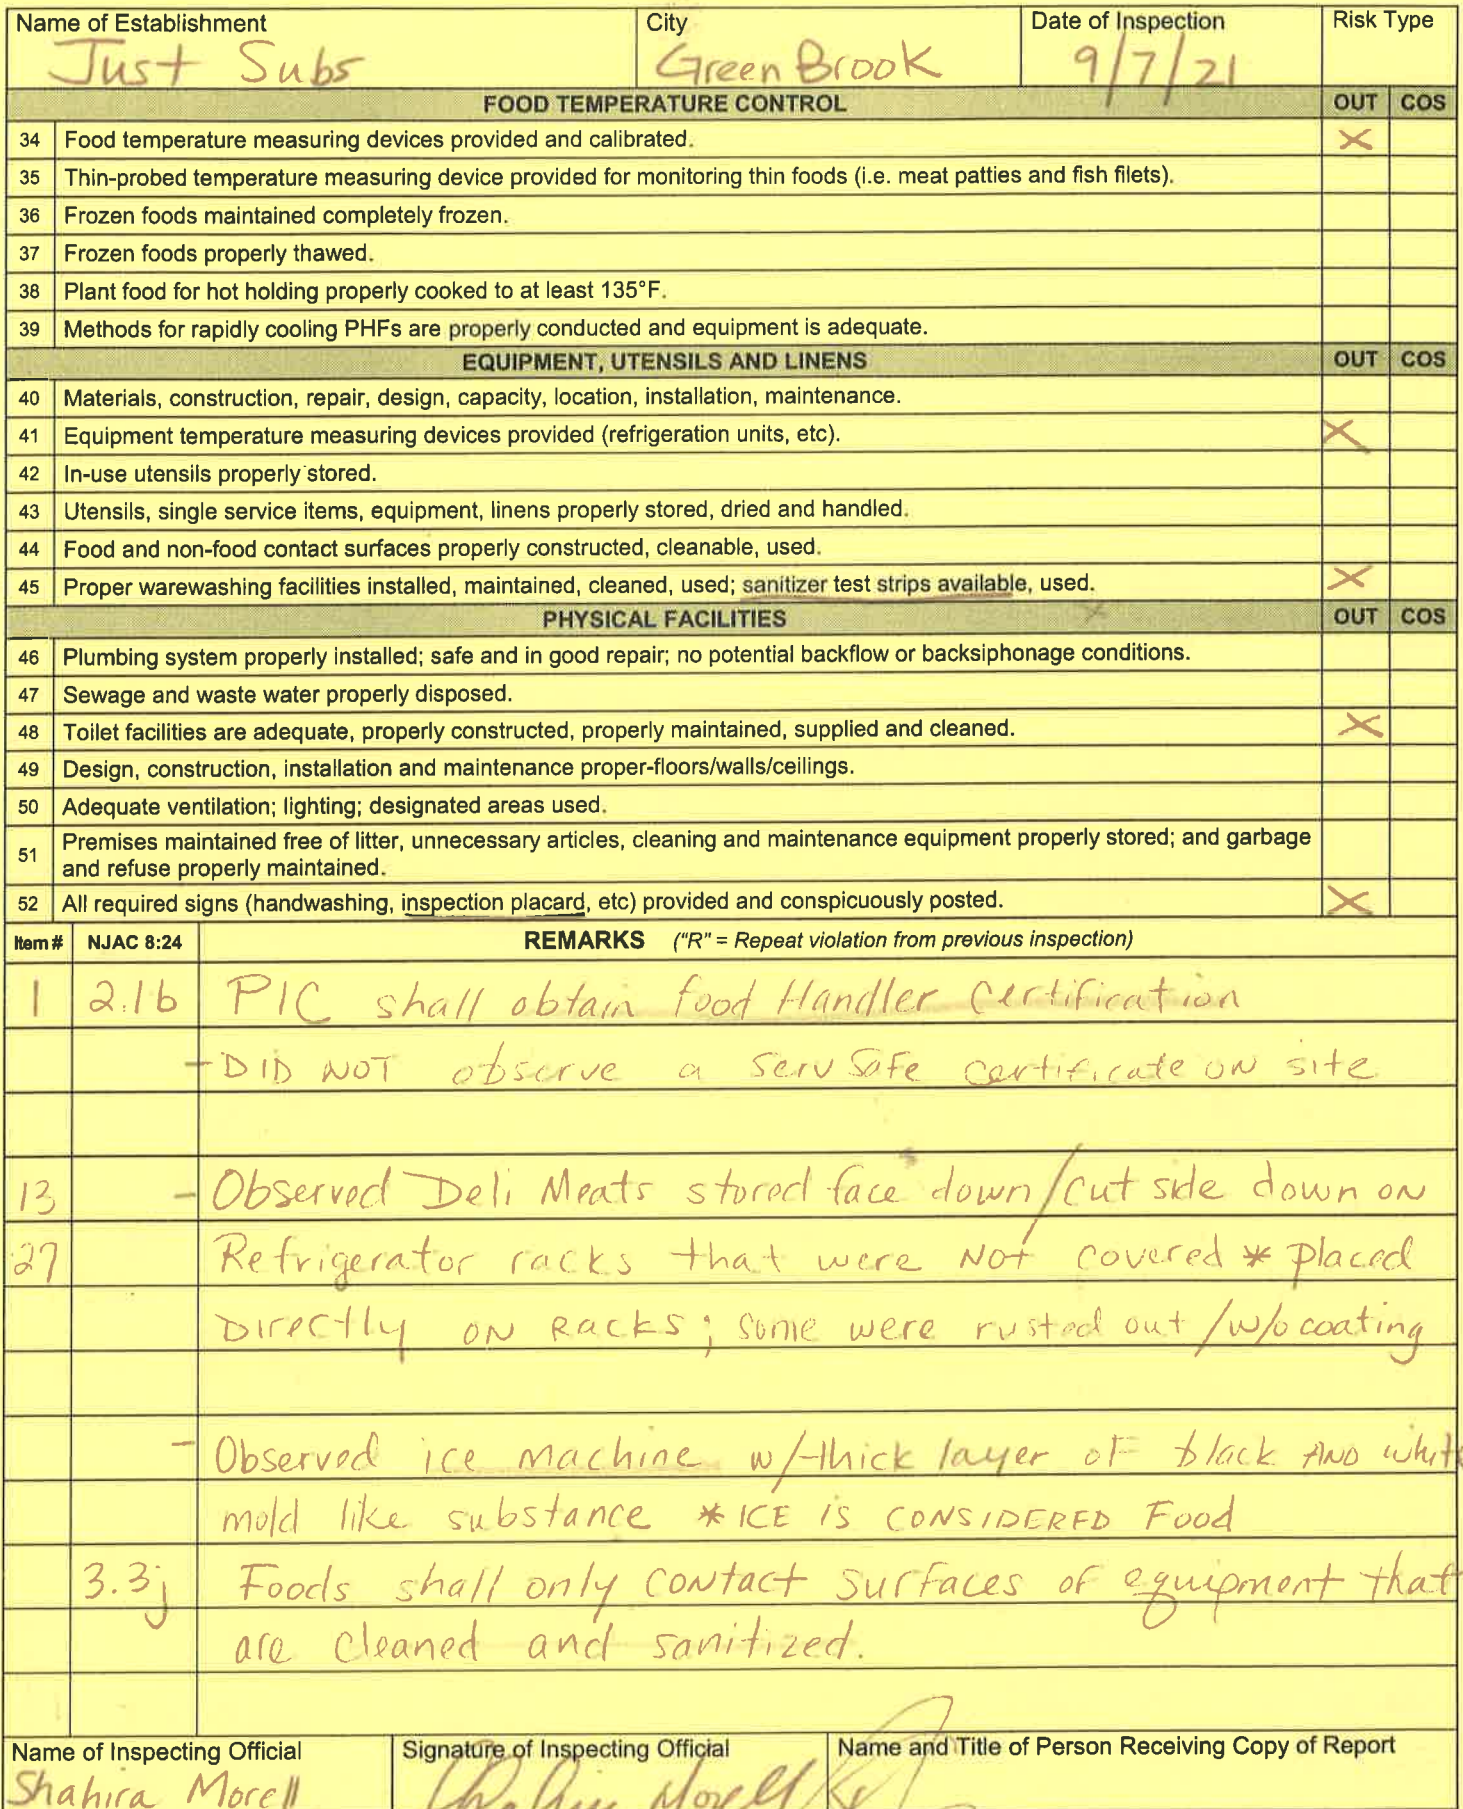 Name of Establishment City Date of Inspection Risk Type
Just Subs Green Brook 9/7/21
FOOD TEMPERATURE CONTROL OUT COS
34 Food temperature measuring devices provided and calibrated. X
35 Thin-probed temperature measuring device provided for monitoring thin foods (i.e. meat patties and fish filets).
36 Frozen foods maintained completely frozen.
37 Frozen foods properly thawed.
38 Plant food for hot holding properly cooked to at least 135°F.
39 Methods for rapidly cooling PHFs are properly conducted and equipment is adequate.
EQUIPMENT, UTENSILS AND LINENS OUT COS
40 Materials, construction, repair, design, capacity, location, installation, maintenance.
41 Equipment temperature measuring devices provided (refrigeration units, etc). X
42 In-use utensils properly stored.
43 Utensils, single service items, equipment, linens properly stored, dried and handled.
44 Food and non-food contact surfaces properly constructed, cleanable, used.
45 Proper warewashing facilities installed, maintained, cleaned, used; sanitizer test strips available, used. X
PHYSICAL FACILITIES OUT COS
46 Plumbing system properly installed; safe and in good repair; no potential backflow or backsiphonage conditions.
47 Sewage and waste water properly disposed.
48 Toilet facilities are adequate, properly constructed, properly maintained, supplied and cleaned. X
49 Design, construction, installation and maintenance proper-floors/walls/ceilings.
50 Adequate ventilation; lighting; designated areas used.
51 Premises maintained free of litter, unnecessary articles, cleaning and maintenance equipment properly stored; and garbage
and refuse properly maintained.
52 All required signs (handwashing, inspection placard, etc) provided and conspicuously posted. X
Item # NJAC 8:24 REMARKS ("R" = Repeat violation from previous inspection)
1 2.1b PIC shall obtain food Handler Certification
- DID NOT observe a ServSafe certificate ON site
13 - Observed Deli Meats stored face down/cut side down ON
27 Refrigerator racks that were NOT covered * placed
Directly ON Racks; some were rusted out /w/o coating
- Observed ice machine w/thick layer of black AND white
mold like substance * ICE IS CONSIDERED Food
3.3j Foods shall only contact surfaces of equipment that
are cleaned and sanitized.
Name of Inspecting Official Signature of Inspecting Official Name and Title of Person Receiving Copy of Report
Shahira Morell Shahira Morell